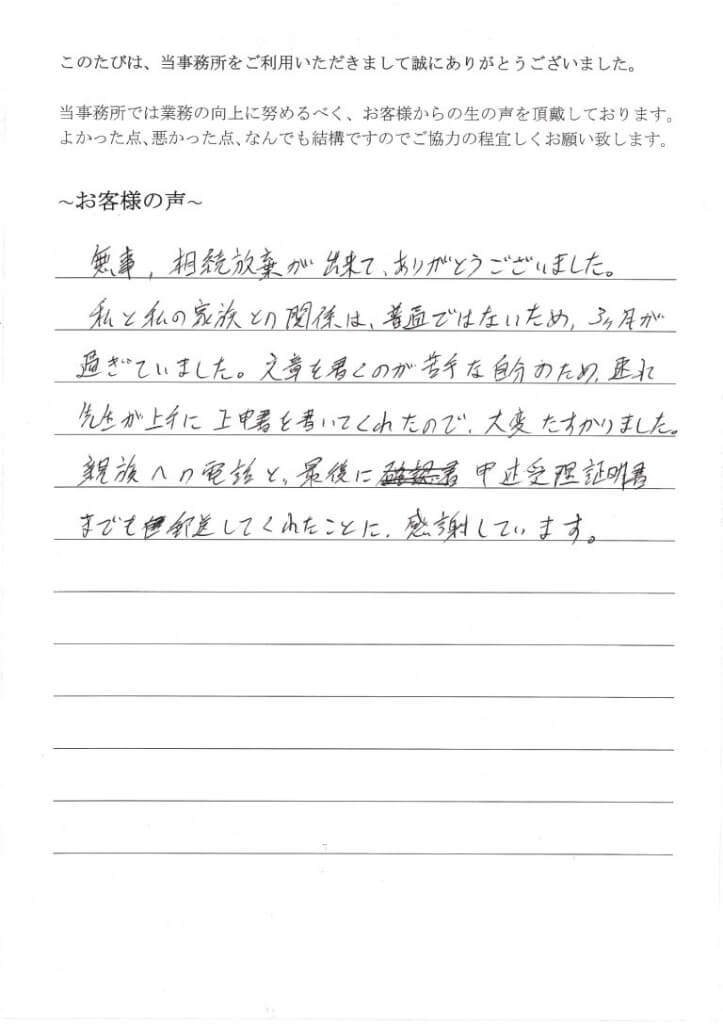 このたびは、当事務所をご利用いただきまして誠にありがとうございました。
当事務所では業務の向上に努めるべく、お客様からの生の声を頂戴しております。
よかった点、悪かった点、なんでも結構ですのでご協力の程宜しくお願い致します。
~お客様の声~
無事，相続放棄が出来て、ありがとうございました。
私と私の家族との関係は、普通ではないため，3ヶ月が
過ぎていました。文章を書くのが苦手な自分のため、
先生が上手に上申書を書いてくれたので、大変たすかりました。
親族への電話と、最後に申述受理証明書
までも郵送してくれたことに、感謝しています。